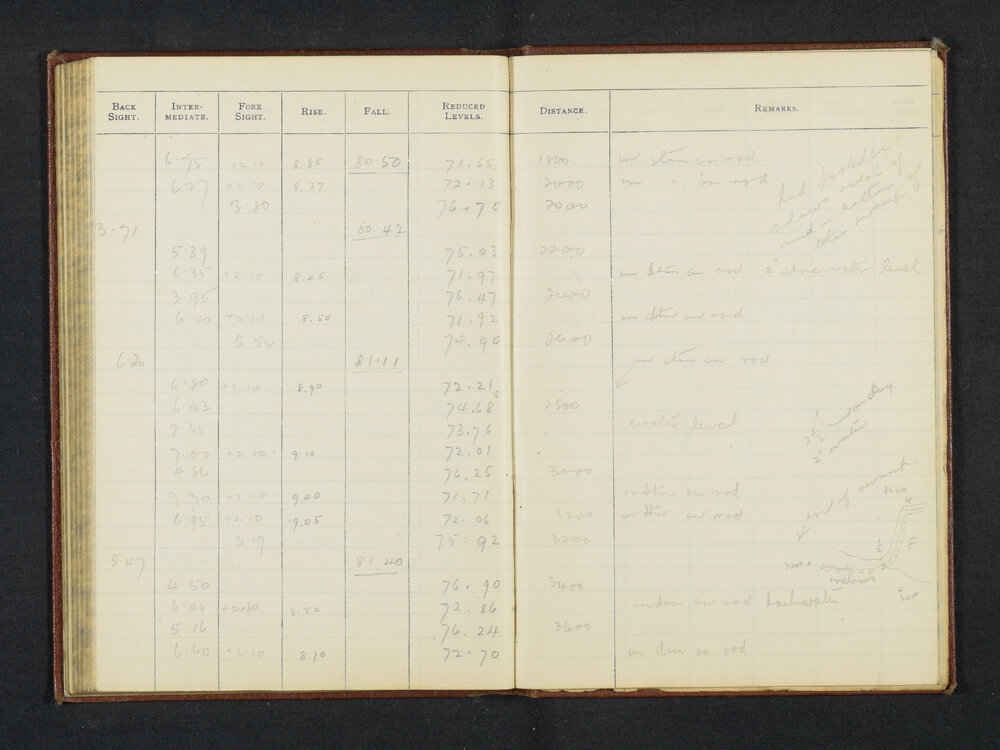 BACK SIGHT. INTER-MEDIATE. FORE SIGHT. RISE. FALL. REDUCED LEVELS. DISTANCE. REMARKS.
6.75 +2.10 8.85 80.50 71.65 1800 in on rod
6.27 +2.10 8.37 72.13 2000 in " on rod
3.80 76.70 2000
had
mud in bottom of
this swamp
3.71 80.42
5.39 75.03 2200
6.35 +2.10 8.45 71.97 in on rod 2" above water level
3.95 76.47 2400
6.40 +2.10 8.50 71.92 in on rod
5.52 74.90 2600
6.20 81.11 in on rod
6.80 +2.10 8.90 72.21
6.43 74.68 2800
7.35 73.76 water level
3½' mud on clay
2' water
7.00 +2.10 9.10 72.01
4.86 76.25 3000
7.30 +2.10 9.40 71.71 on rod
6.95 +2.10 9.05 72.06 3200 in on rod
end of
5.19 75.92 3200
5.47 81.40
4.50 76.90 3400
6.44 +2.10 8.54 72.86 on rod backwater
5.16 76.24 3600
6.60 +2.10 8.70 72.70 in on rod